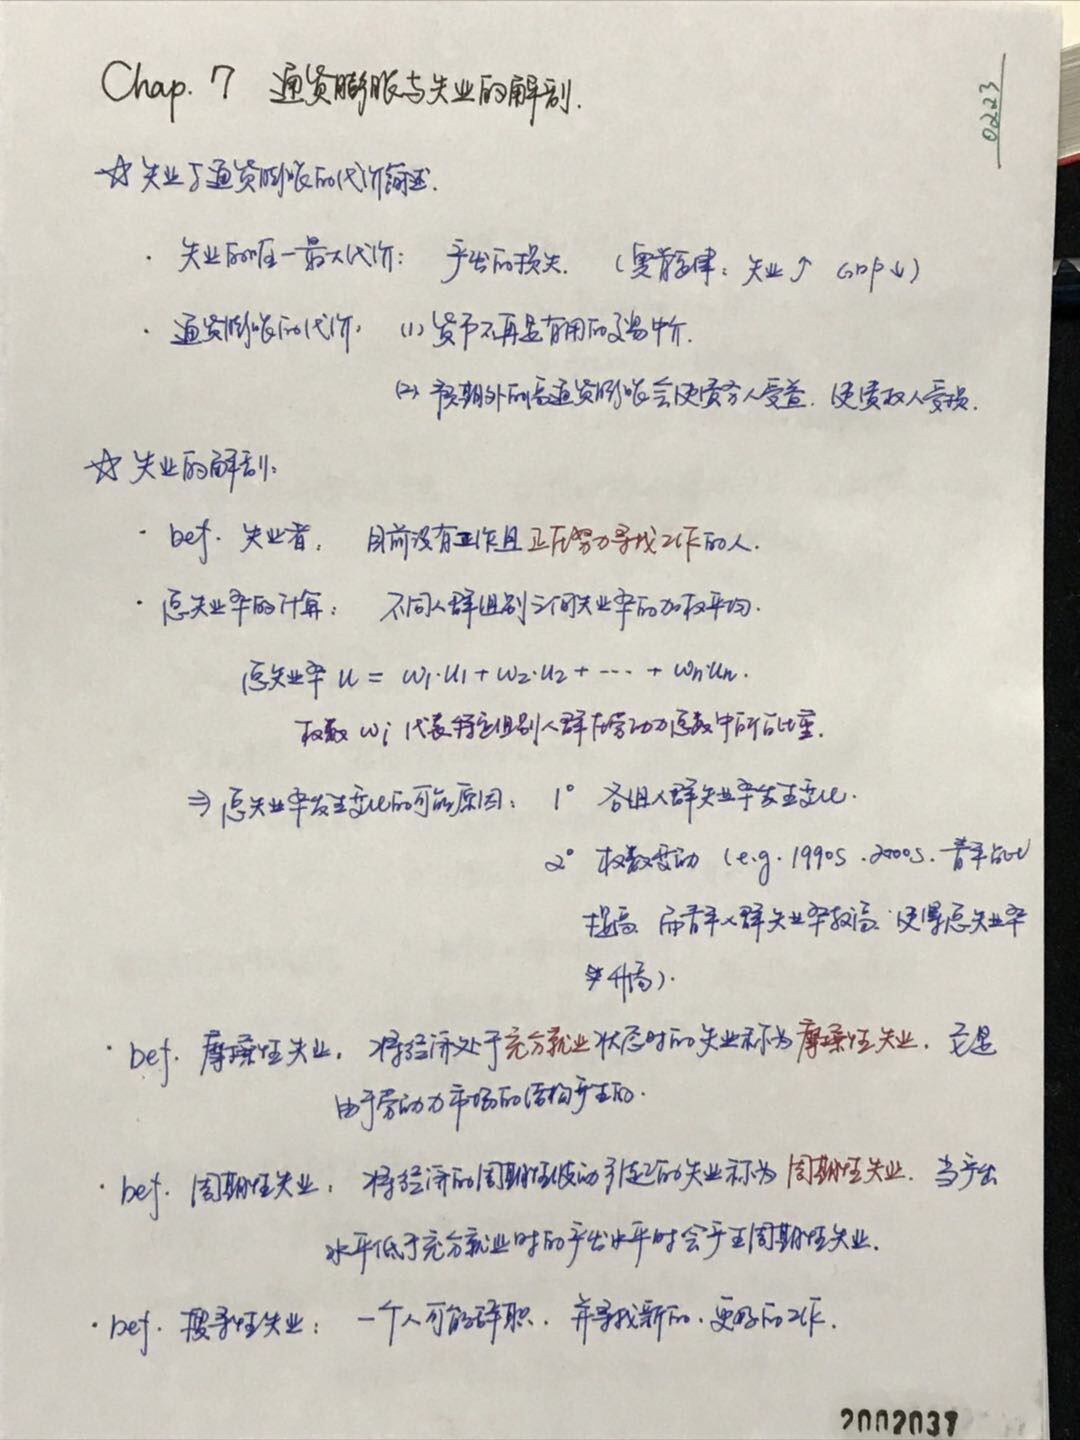 0223
Chap. 7 通货膨胀与失业的解剖.
☆ 失业与通货膨胀的代价简述.
· 失业的唯一最大代价: 产出的损失. (奥肯定律: 失业↑ GDP↓)
· 通货膨胀的代价: (1) 货币不再是有用的交易中介.
(2) 预期外的高通货膨胀会使债务人受益. 使债权人受损.
☆ 失业的解剖:
· Def. 失业者: 目前没有工作且正在努力寻找工作的人.
· 总失业率的计算: 不同人群组别之间失业率的加权平均.
总失业率 u = w₁·u₁ + w₂·u₂ + ··· + wn·un.
权数 wi 代表特定组别人群在劳动力总数中所占比重.
⇒ 总失业率发生变化的可能原因: 1° 各组人群失业率发生变化.
2° 权数变动 (e.g. 1990s. 2000s. 青年占比
提高, 而青年人群失业率较高. 使得总失业率
升高).
· Def. 摩擦性失业: 将经济处于充分就业状态时的失业称为摩擦性失业. 它是
由于劳动力市场的结构产生的.
· Def. 周期性失业: 将经济的周期性波动引起的失业称为周期性失业. 当产出
水平低于充分就业时的产出水平时会产生周期性失业.
· Def. 搜寻性失业: 一个人可能辞职. 并寻找新的. 更好的工作.
2002037